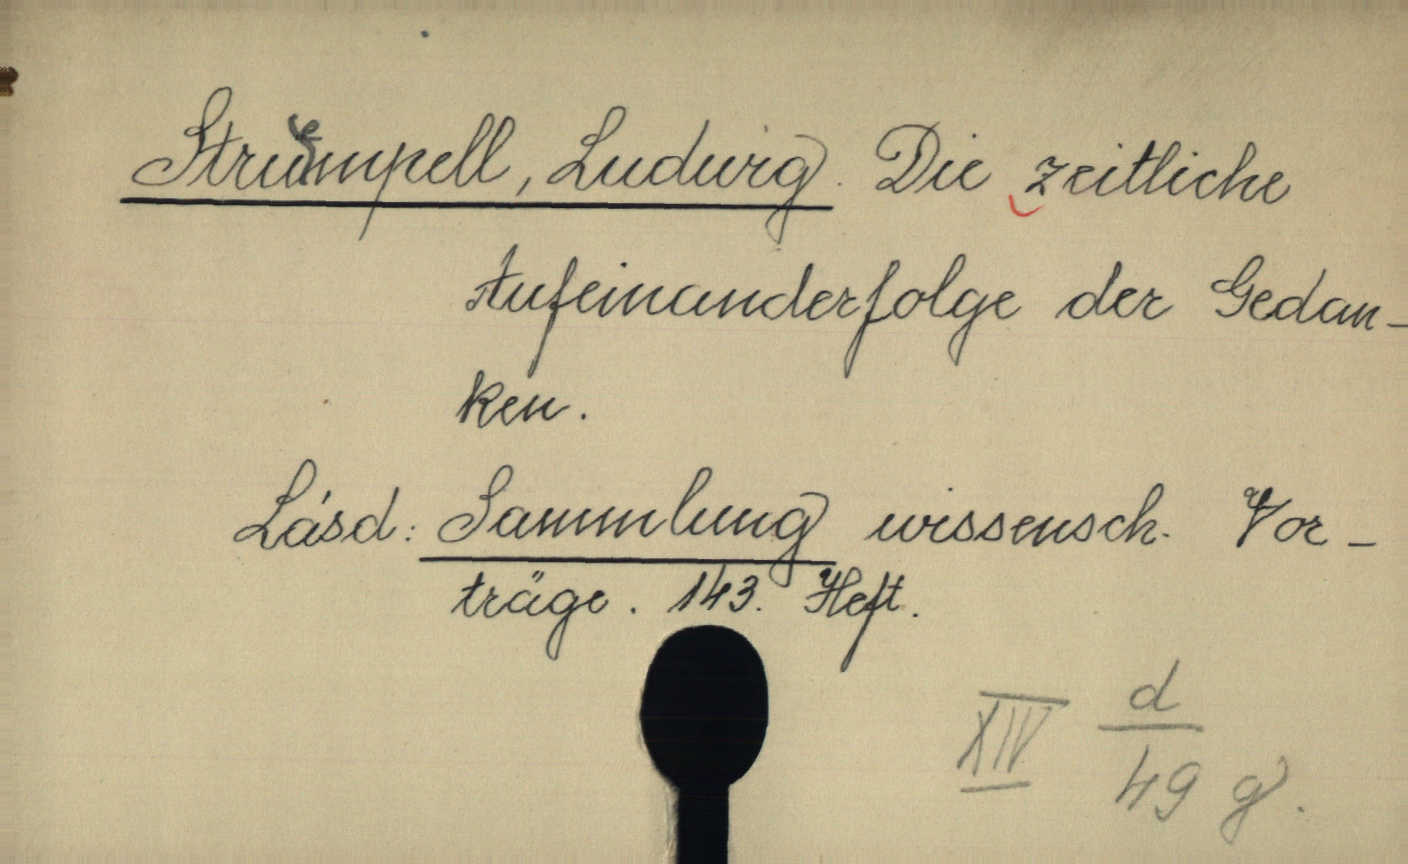 Strümpell, Ludwig. Die zeitliche
Aufeinanderfolge der Gedan-
ken.
Lásd: Sammlung wissensch. Vor-
träge. 143. Heft.
XIV d/49 g.